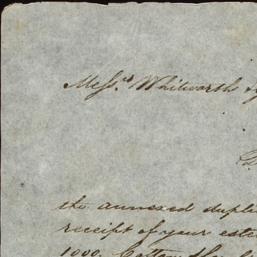 Mess.rs Whitworth &
the annexed duple
receipt of your este
1000 Cotton